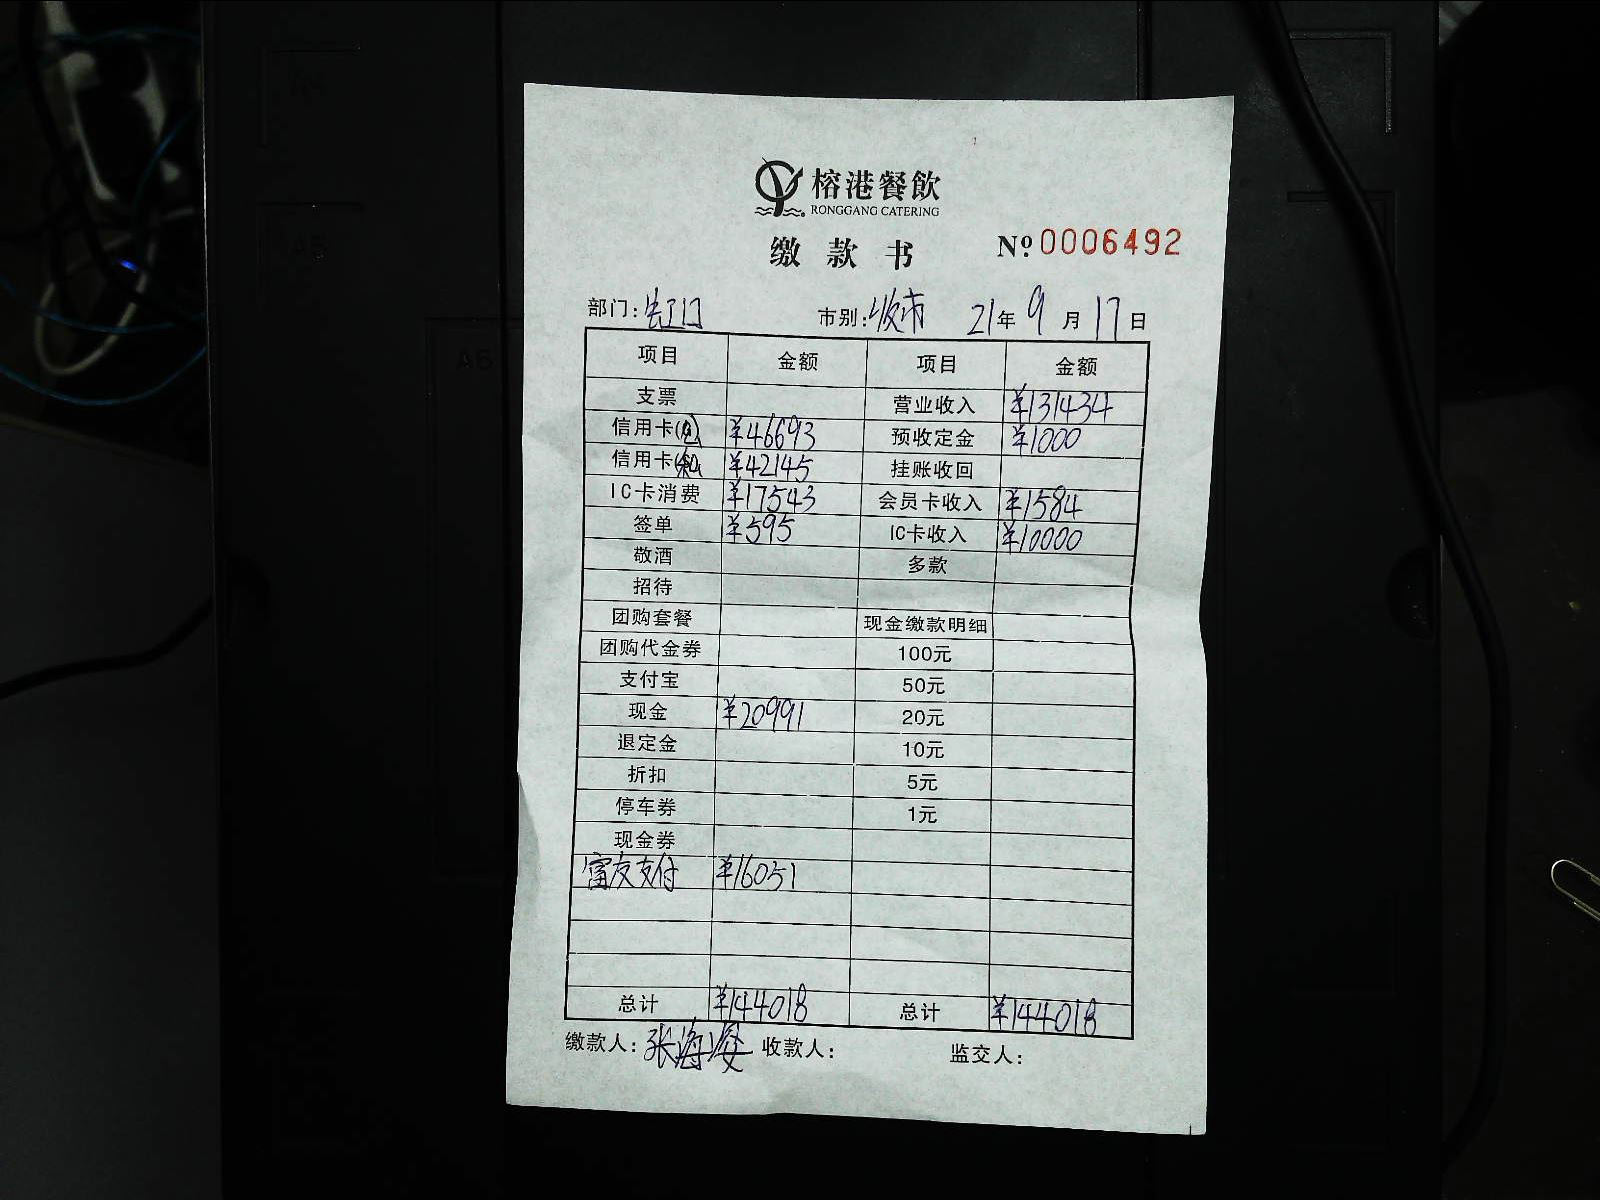 榕港餐飲
RONGGANG CATERING
缴款书 Nº 0006492
部门: 市别: 21年9月17日
项目 金额 项目 金额
支票 营业收入 ¥131434
信用卡 ¥46693 预收定金 ¥1000
信用卡 ¥42145 挂账收回
IC卡消费 ¥17543 会员卡收入 ¥1584
签单 ¥595 IC卡收入 ¥10000
敬酒 多款
招待
团购套餐 现金缴款明细
团购代金券 100元
支付宝 50元
现金 ¥20991 20元
退定金 10元
折扣 5元
停车券 1元
现金券
富友支付 ¥16051
总计 ¥144018 总计 ¥144018
缴款人: 张海 收款人: 监交人: